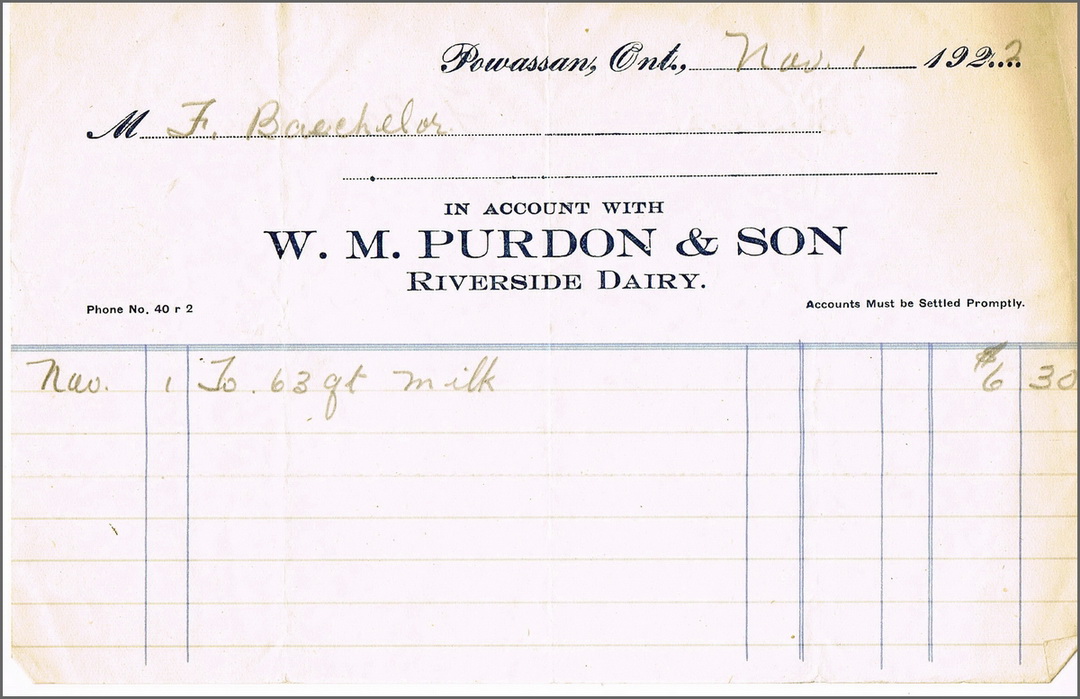 Powassan, Ont., Nov. 1 1922
M F. Baechelor
IN ACCOUNT WITH
W. M. PURDON & SON
RIVERSIDE DAIRY.
Phone No. 40 r 2 Accounts Must be Settled Promptly.
Nov. 1 To 63 qt milk $6 30